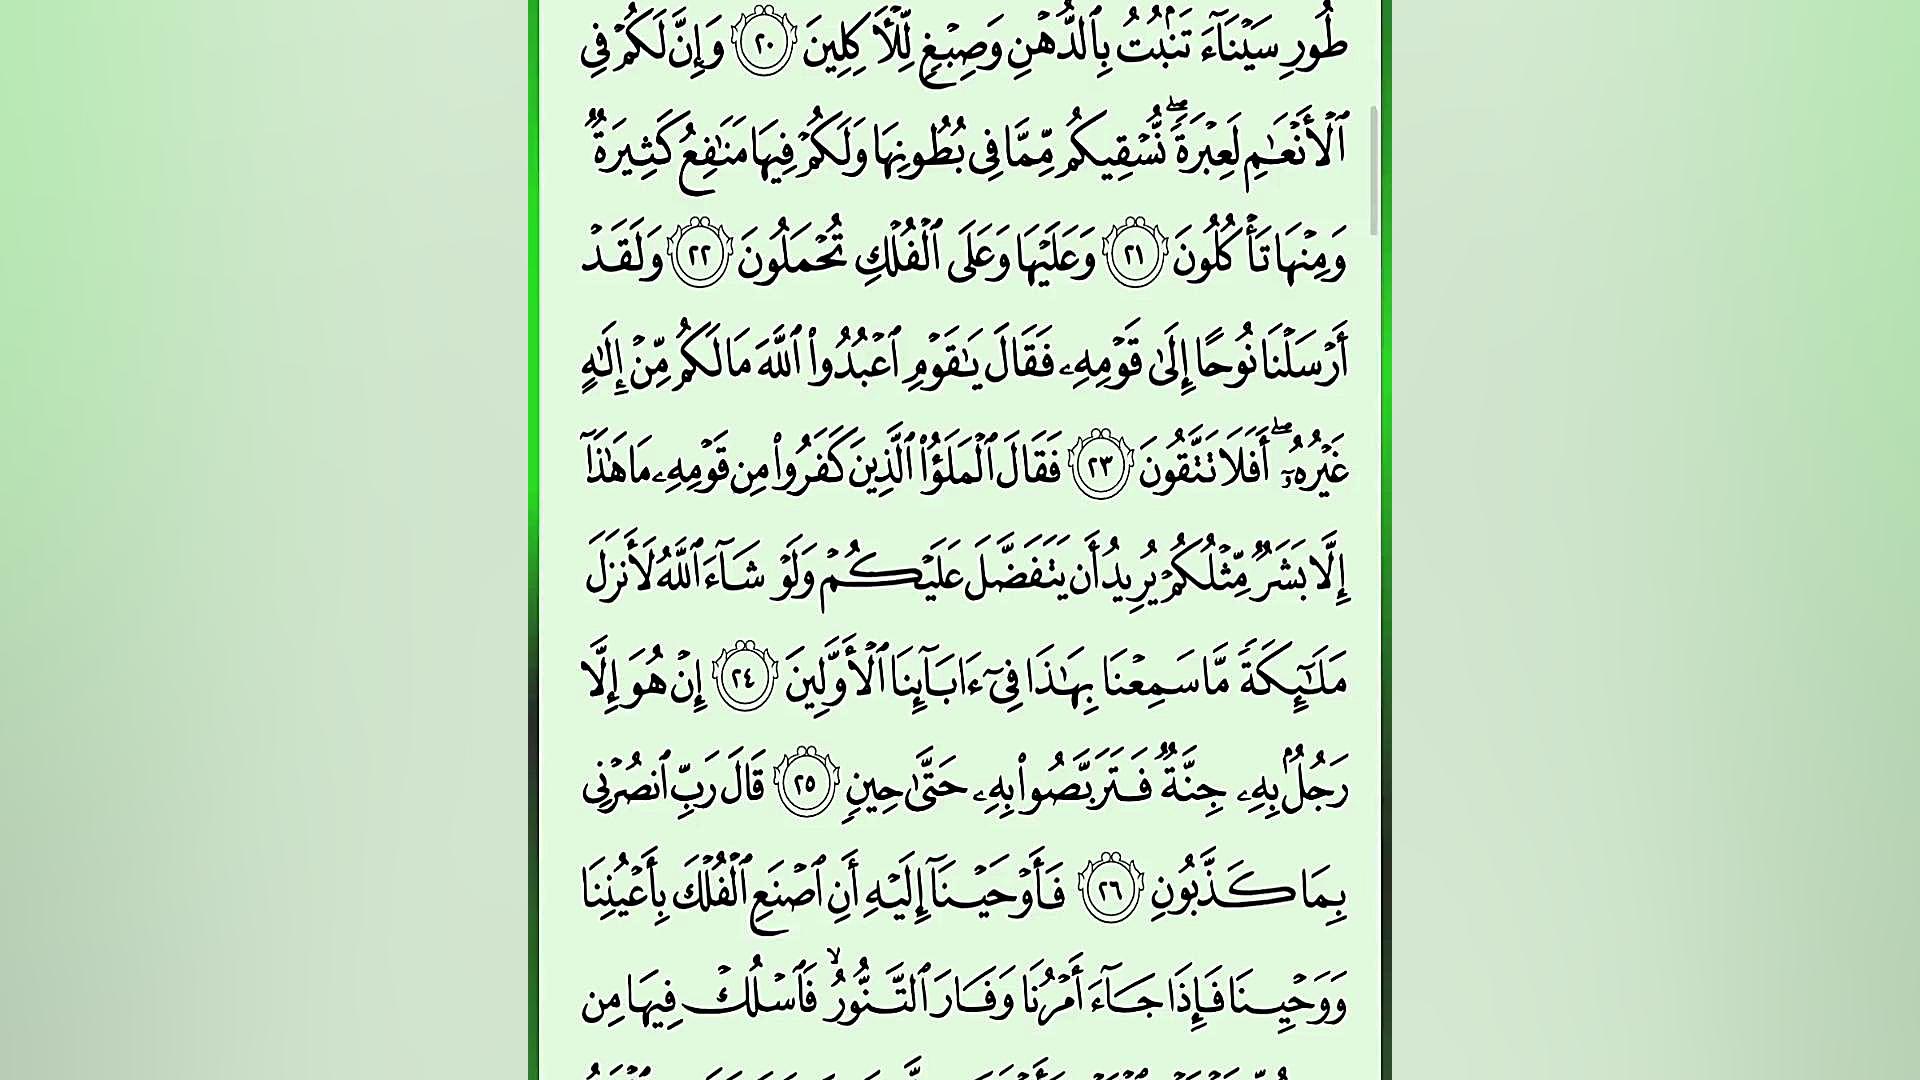 طُورِ سَيْنَآءَ تَنۢبُتُ بِٱلدُّهْنِ وَصِبْغٍ لِّلْـَٔاكِلِينَ ٢٠ وَإِنَّ لَكُمْ فِى
ٱلْأَنْعَـٰمِ لَعِبْرَةًۖ نُّسْقِيكُم مِّمَّا فِى بُطُونِهَا وَلَكُمْ فِيهَا مَنَـٰفِعُ كَثِيرَةٌ
وَمِنْهَا تَأْكُلُونَ ٢١ وَعَلَيْهَا وَعَلَى ٱلْفُلْكِ تُحْمَلُونَ ٢٢ وَلَقَدْ
أَرْسَلْنَا نُوحًا إِلَىٰ قَوْمِهِۦ فَقَالَ يَـٰقَوْمِ ٱعْبُدُوا۟ ٱللَّهَ مَا لَكُم مِّنْ إِلَـٰهٍ
غَيْرُهُۥٓۖ أَفَلَا تَتَّقُونَ ٢٣ فَقَالَ ٱلْمَلَؤُا۟ ٱلَّذِينَ كَفَرُوا۟ مِن قَوْمِهِۦ مَا هَـٰذَآ
إِلَّا بَشَرٌ مِّثْلُكُمْ يُرِيدُ أَن يَتَفَضَّلَ عَلَيْكُمْ وَلَوْ شَآءَ ٱللَّهُ لَأَنزَلَ
مَلَـٰٓئِكَةً مَّا سَمِعْنَا بِهَـٰذَا فِىٓ ءَابَآئِنَا ٱلْأَوَّلِينَ ٢٤ إِنْ هُوَ إِلَّا
رَجُلٌۢ بِهِۦ جِنَّةٌ فَتَرَبَّصُوا۟ بِهِۦ حَتَّىٰ حِينٍ ٢٥ قَالَ رَبِّ ٱنصُرْنِى
بِمَا كَذَّبُونِ ٢٦ فَأَوْحَيْنَآ إِلَيْهِ أَنِ ٱصْنَعِ ٱلْفُلْكَ بِأَعْيُنِنَا
وَوَحْيِنَا فَإِذَا جَآءَ أَمْرُنَا وَفَارَ ٱلتَّنُّورُۙ فَٱسْلُكْ فِيهَا مِن